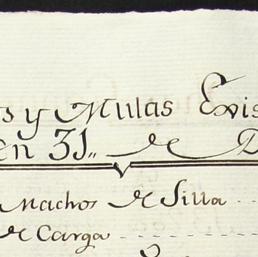 s y Mulas Exis
en 31,, de D
Machos de Silla
de Carga